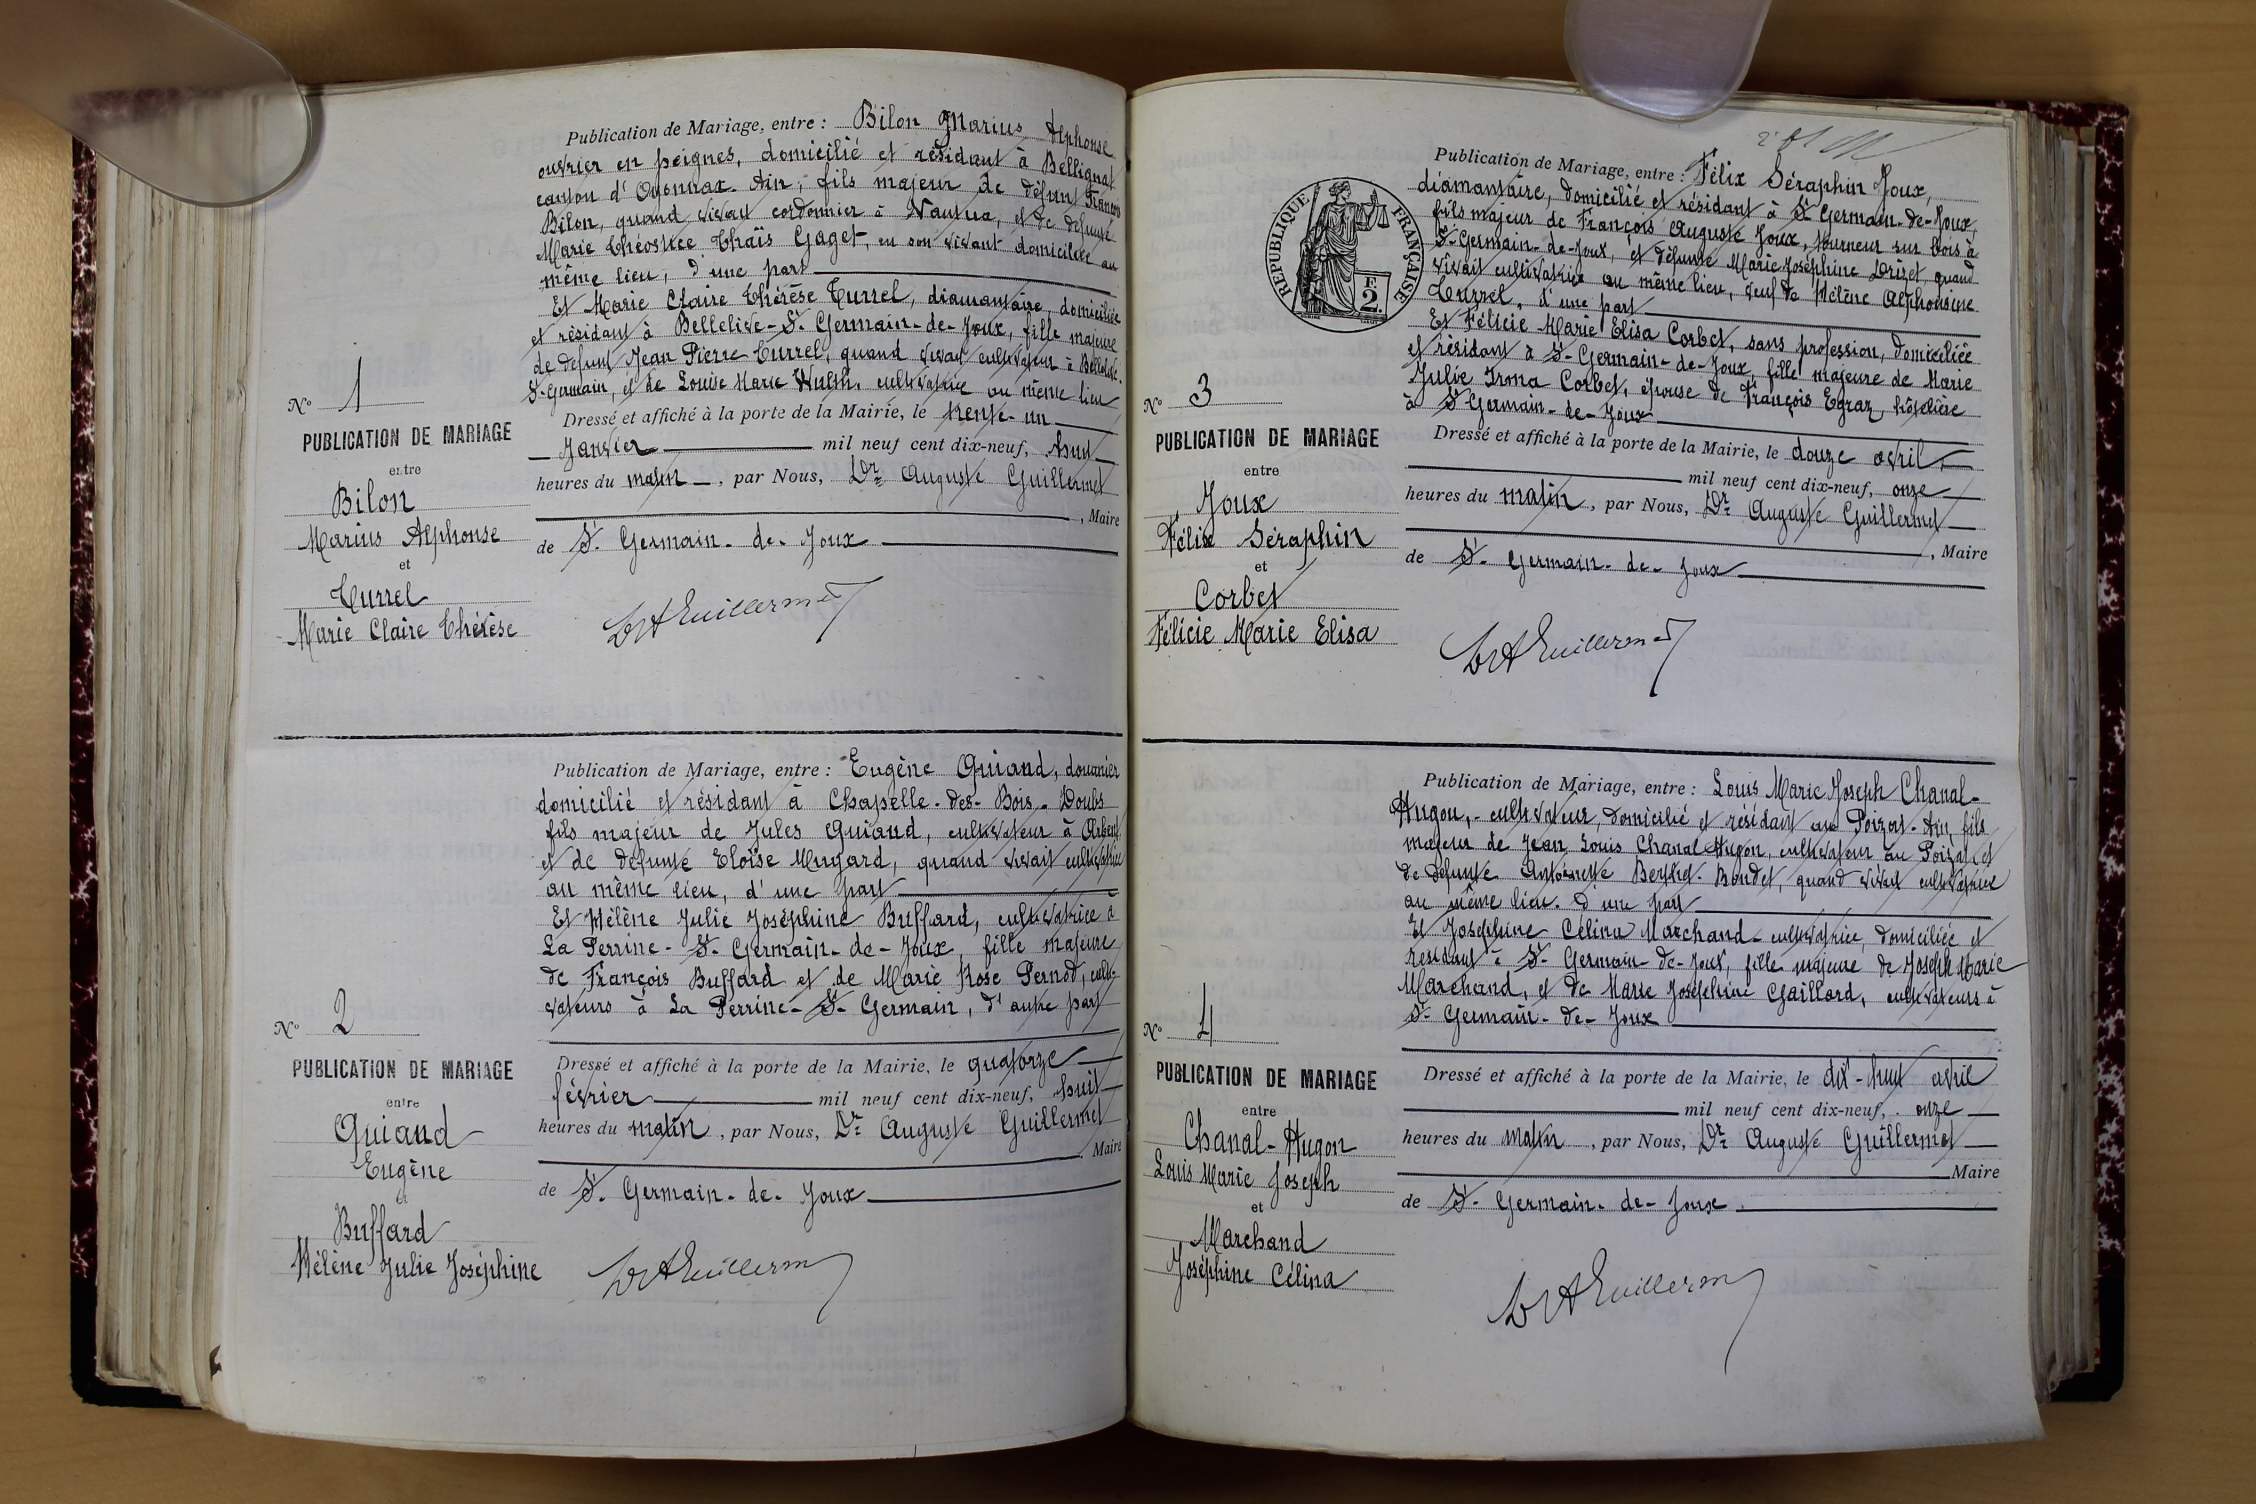 Publication de Mariage, entre : Bilon Marius Alphonse
ouvrier en peignes, domicilié et résidant à Bellignat
canton d'Oyonnax. Ain, fils majeur de défunt François
Bilon, quand vivait cordonnier à Nantua, et de défunte
Marie Théostice Thaïs Gaget, en son vivant domiciliée au
même lieu, d'une part
Et Marie Claire Thérèse Turrel, diamantaire, domiciliée
et résidant à Bellelive-St. Germain-de-Joux, fille majeure
de defunt Jean Pierre Turrel, quand vivait cultivateur à
St-Germain, et de Louise Marie cultivatrice au même lieu
Nº 1
PUBLICATION DE MARIAGE
entre
Bilon
Marius Alphonse
et
Turrel
Marie Claire Thérèse
Dressé et affiché à la porte de la Mairie, le trente-un
Janvier mil neuf cent dix-neuf, huit
heures du matin, par Nous, Dr Auguste Guillermet
, Maire
de St. Germain-de-Joux
Dr A Guillermet
Publication de Mariage, entre : Eugène Guiand, douanier
domicilié et résidant à Chapelle-des-Bois-Doubs
fils majeur de Jules Guiand, cultivateur à Arbent
et de défunte Eloïse Mugard, quand vivait cultivatrice
au même lieu, d'une part
Et Hélène Julie Joséphine Buffard, cultivatrice à
La Perrine-St-Germain-de-Joux, fille majeure
de François Buffard et de Marie Rose Pernod, culti-
vateurs à La Perrine-St-Germain, d'autre part
Nº 2
PUBLICATION DE MARIAGE
entre
Guiand
Eugène
et
Buffard
Hélène Julie Joséphine
Dressé et affiché à la porte de la Mairie, le quatorze
février mil neuf cent dix-neuf, huit
heures du matin, par Nous, Dr Auguste Guillermet
, Maire
de St. Germain-de-Joux
Dr A Guillerm
Publication de Mariage, entre : Félix Séraphin Joux,
diamantaire, domicilié et résidant à St Germain-de-Joux,
fils majeur de François Auguste Joux, tourneur sur bois à
St-Germain-de-Joux, et défunte Marie Joséphine quand
vivait cultivatrice au même lieu, veuf de Hélène Alphonsine
Turrel, d'une part
Et Félicie Marie Elisa Corbet, sans profession, domiciliée
et résidant à St-Germain-de-Joux, fille majeure de Marie
Julie Irma Corbet, épouse de François Egraz, hôtelière
à St Germain-de-Joux
RÉPUBLIQUE FRANÇAISE
F.
2.
Nº 3
PUBLICATION DE MARIAGE
entre
Joux
Félix Séraphin
et
Corbet
Félicie Marie Elisa
Dressé et affiché à la porte de la Mairie, le douze avril
mil neuf cent dix-neuf, onze
heures du matin, par Nous, Dr Auguste Guillermet
, Maire
de St-Germain-de-Joux
Dr A Guillermet
Publication de Mariage, entre : Louis Marie Joseph Chanal-
Hugon, cultivateur, domicilié et résidant au Poizat-Ain, fils
majeur de Jean Louis Chanal Hugon, cultivateur au Poizat, et
de défunte Antoinette Berthet-Bondet, quand vivait cultivatrice
au même lieu. d'une part
Et Joséphine Célina Marchand-cultivatrice, domiciliée et
résidant à St-Germain-de-Joux, fille majeure de Joseph Marie
Marchand, et de Marie Joséphine Gaillard, cultivateurs à
St-Germain-de-Joux
Nº 4
PUBLICATION DE MARIAGE
entre
Chanal-Hugon
Louis Marie Joseph
et
Marchand
Joséphine Célina
Dressé et affiché à la porte de la Mairie, le dix-huit avril
mil neuf cent dix-neuf, onze
heures du matin, par Nous, Dr Auguste Guillermet
Maire
de St-Germain-de-Joux
Dr A Guillerm